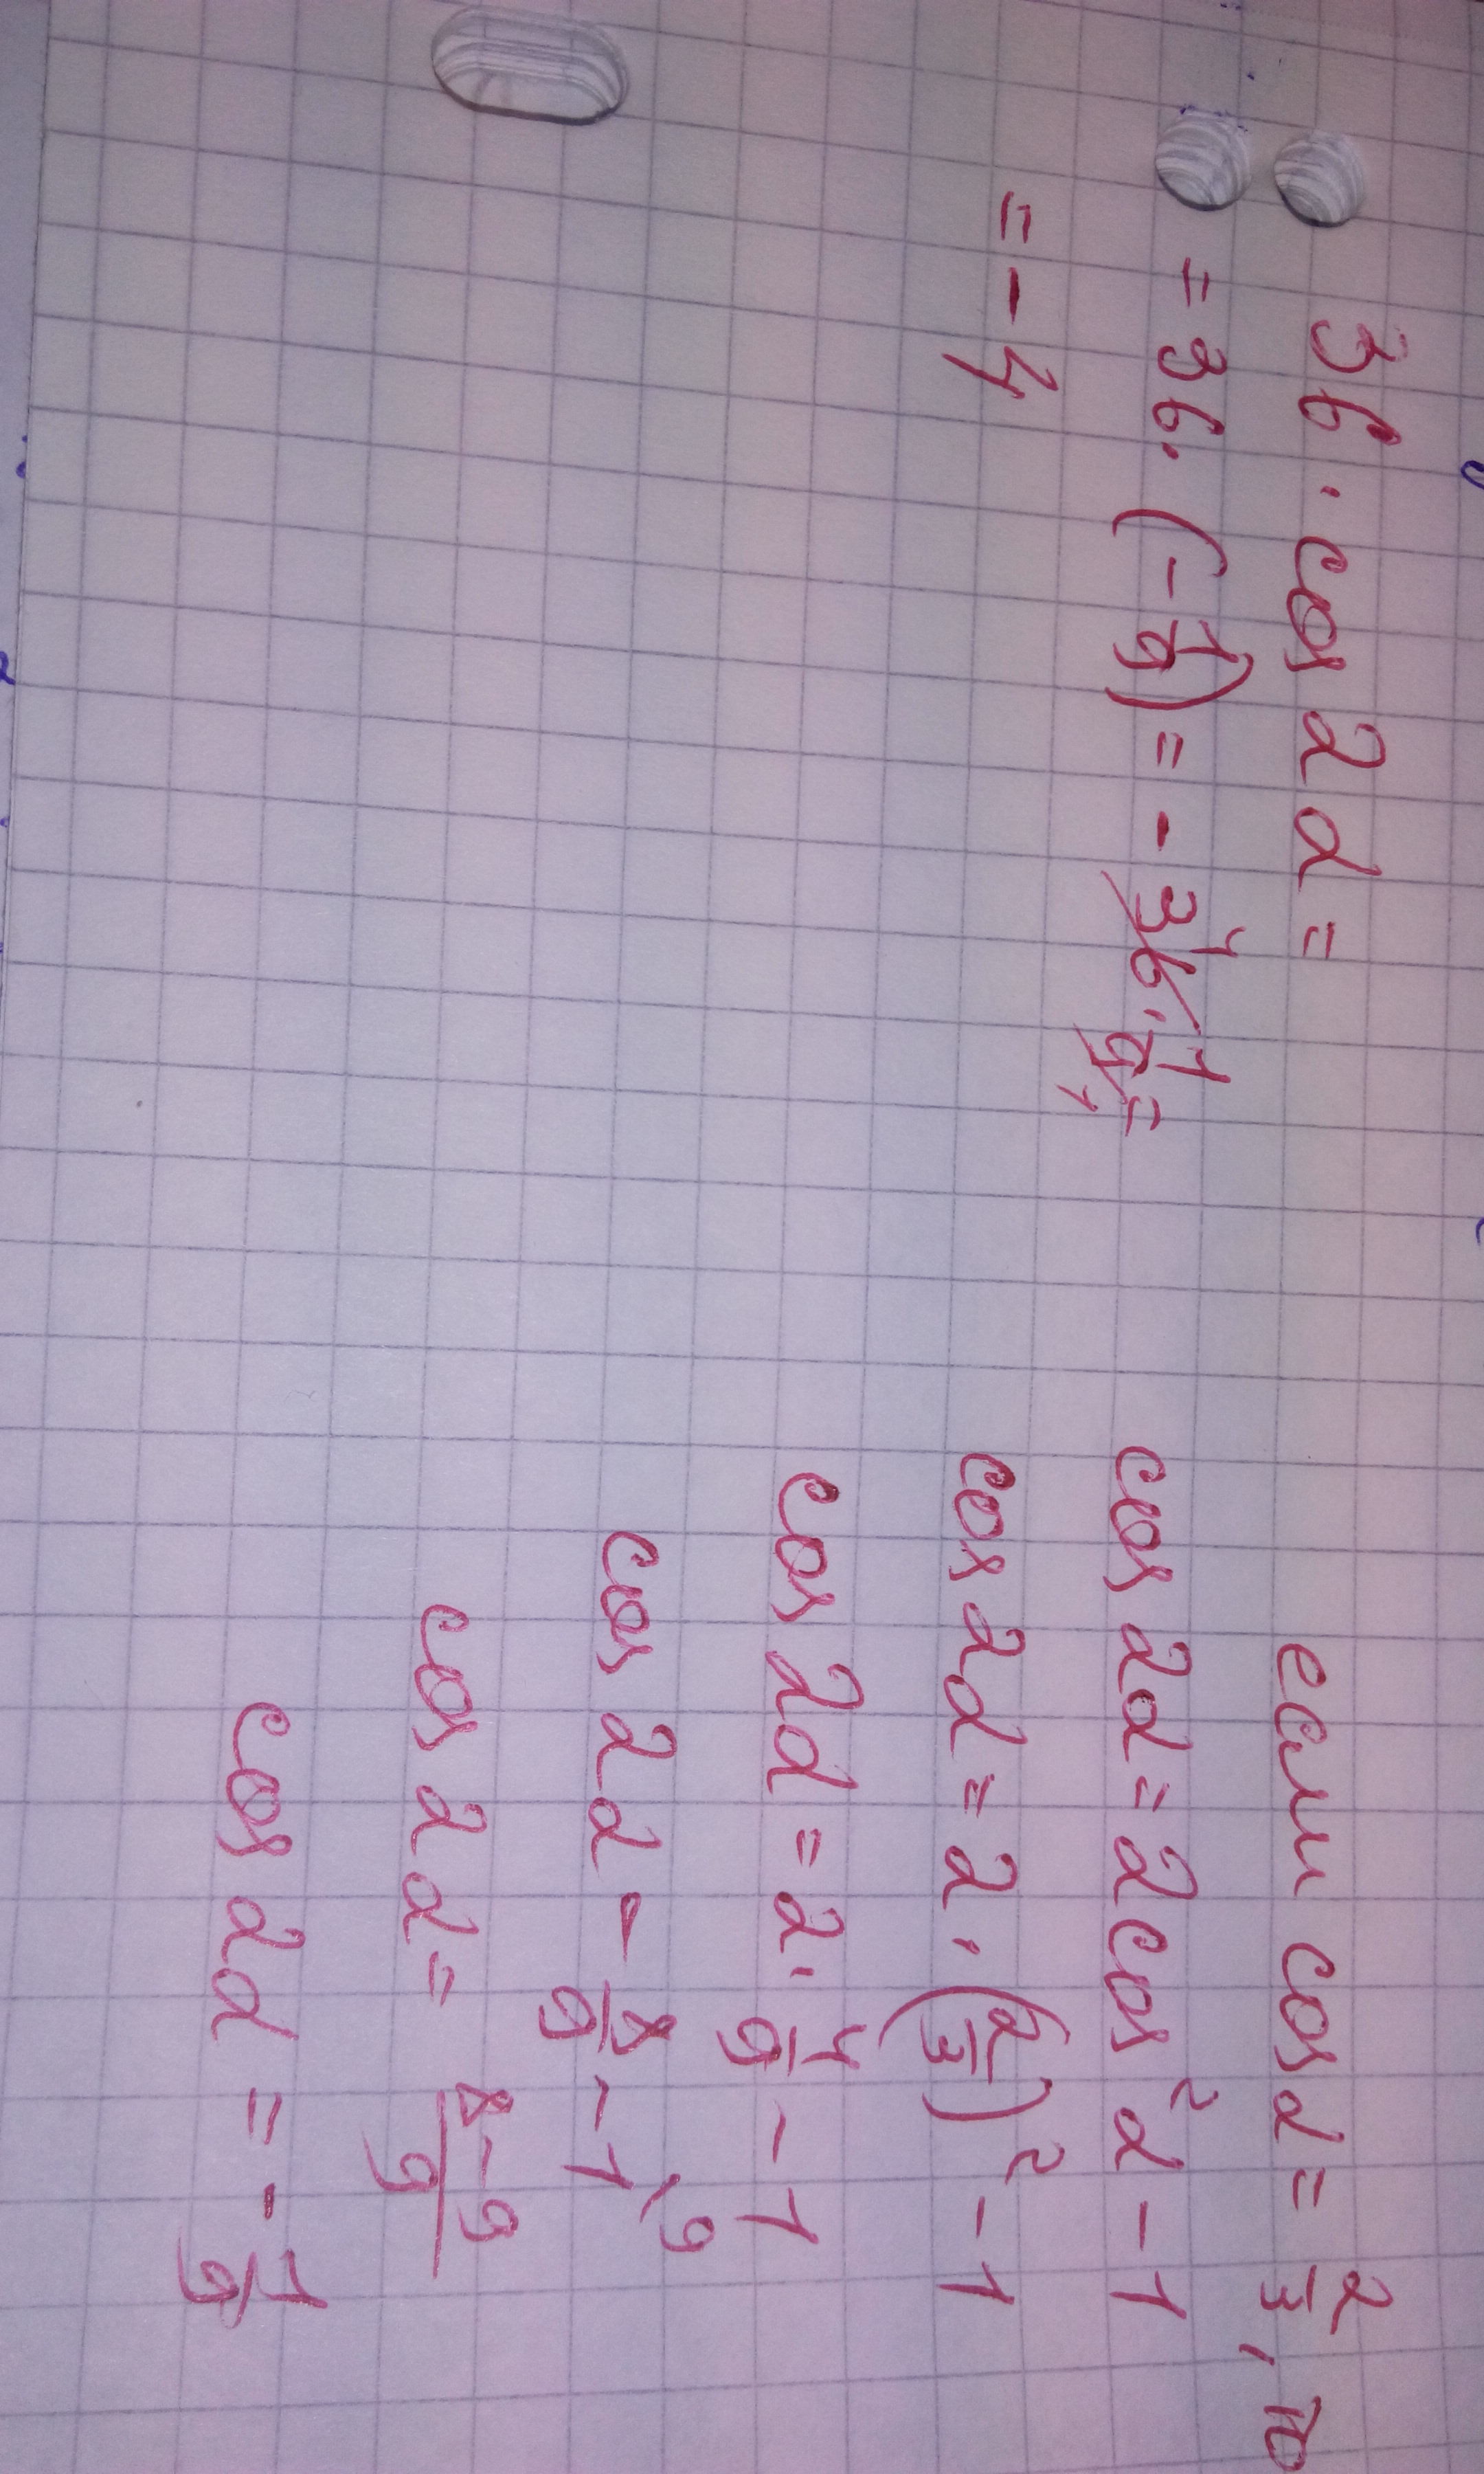 36 · cos 2α =
= 36 · (-1/9) = - 36⁴ · 1/9₁ =
= - 4
если cos α = 2/3, то
cos 2α = 2 cos² α - 1
cos 2α = 2 · (2/3)² - 1
cos 2α = 2 · 4/9 - 1
cos 2α = 8/9 - 1\9
cos 2α = 8-9/9
cos 2α = - 1/9